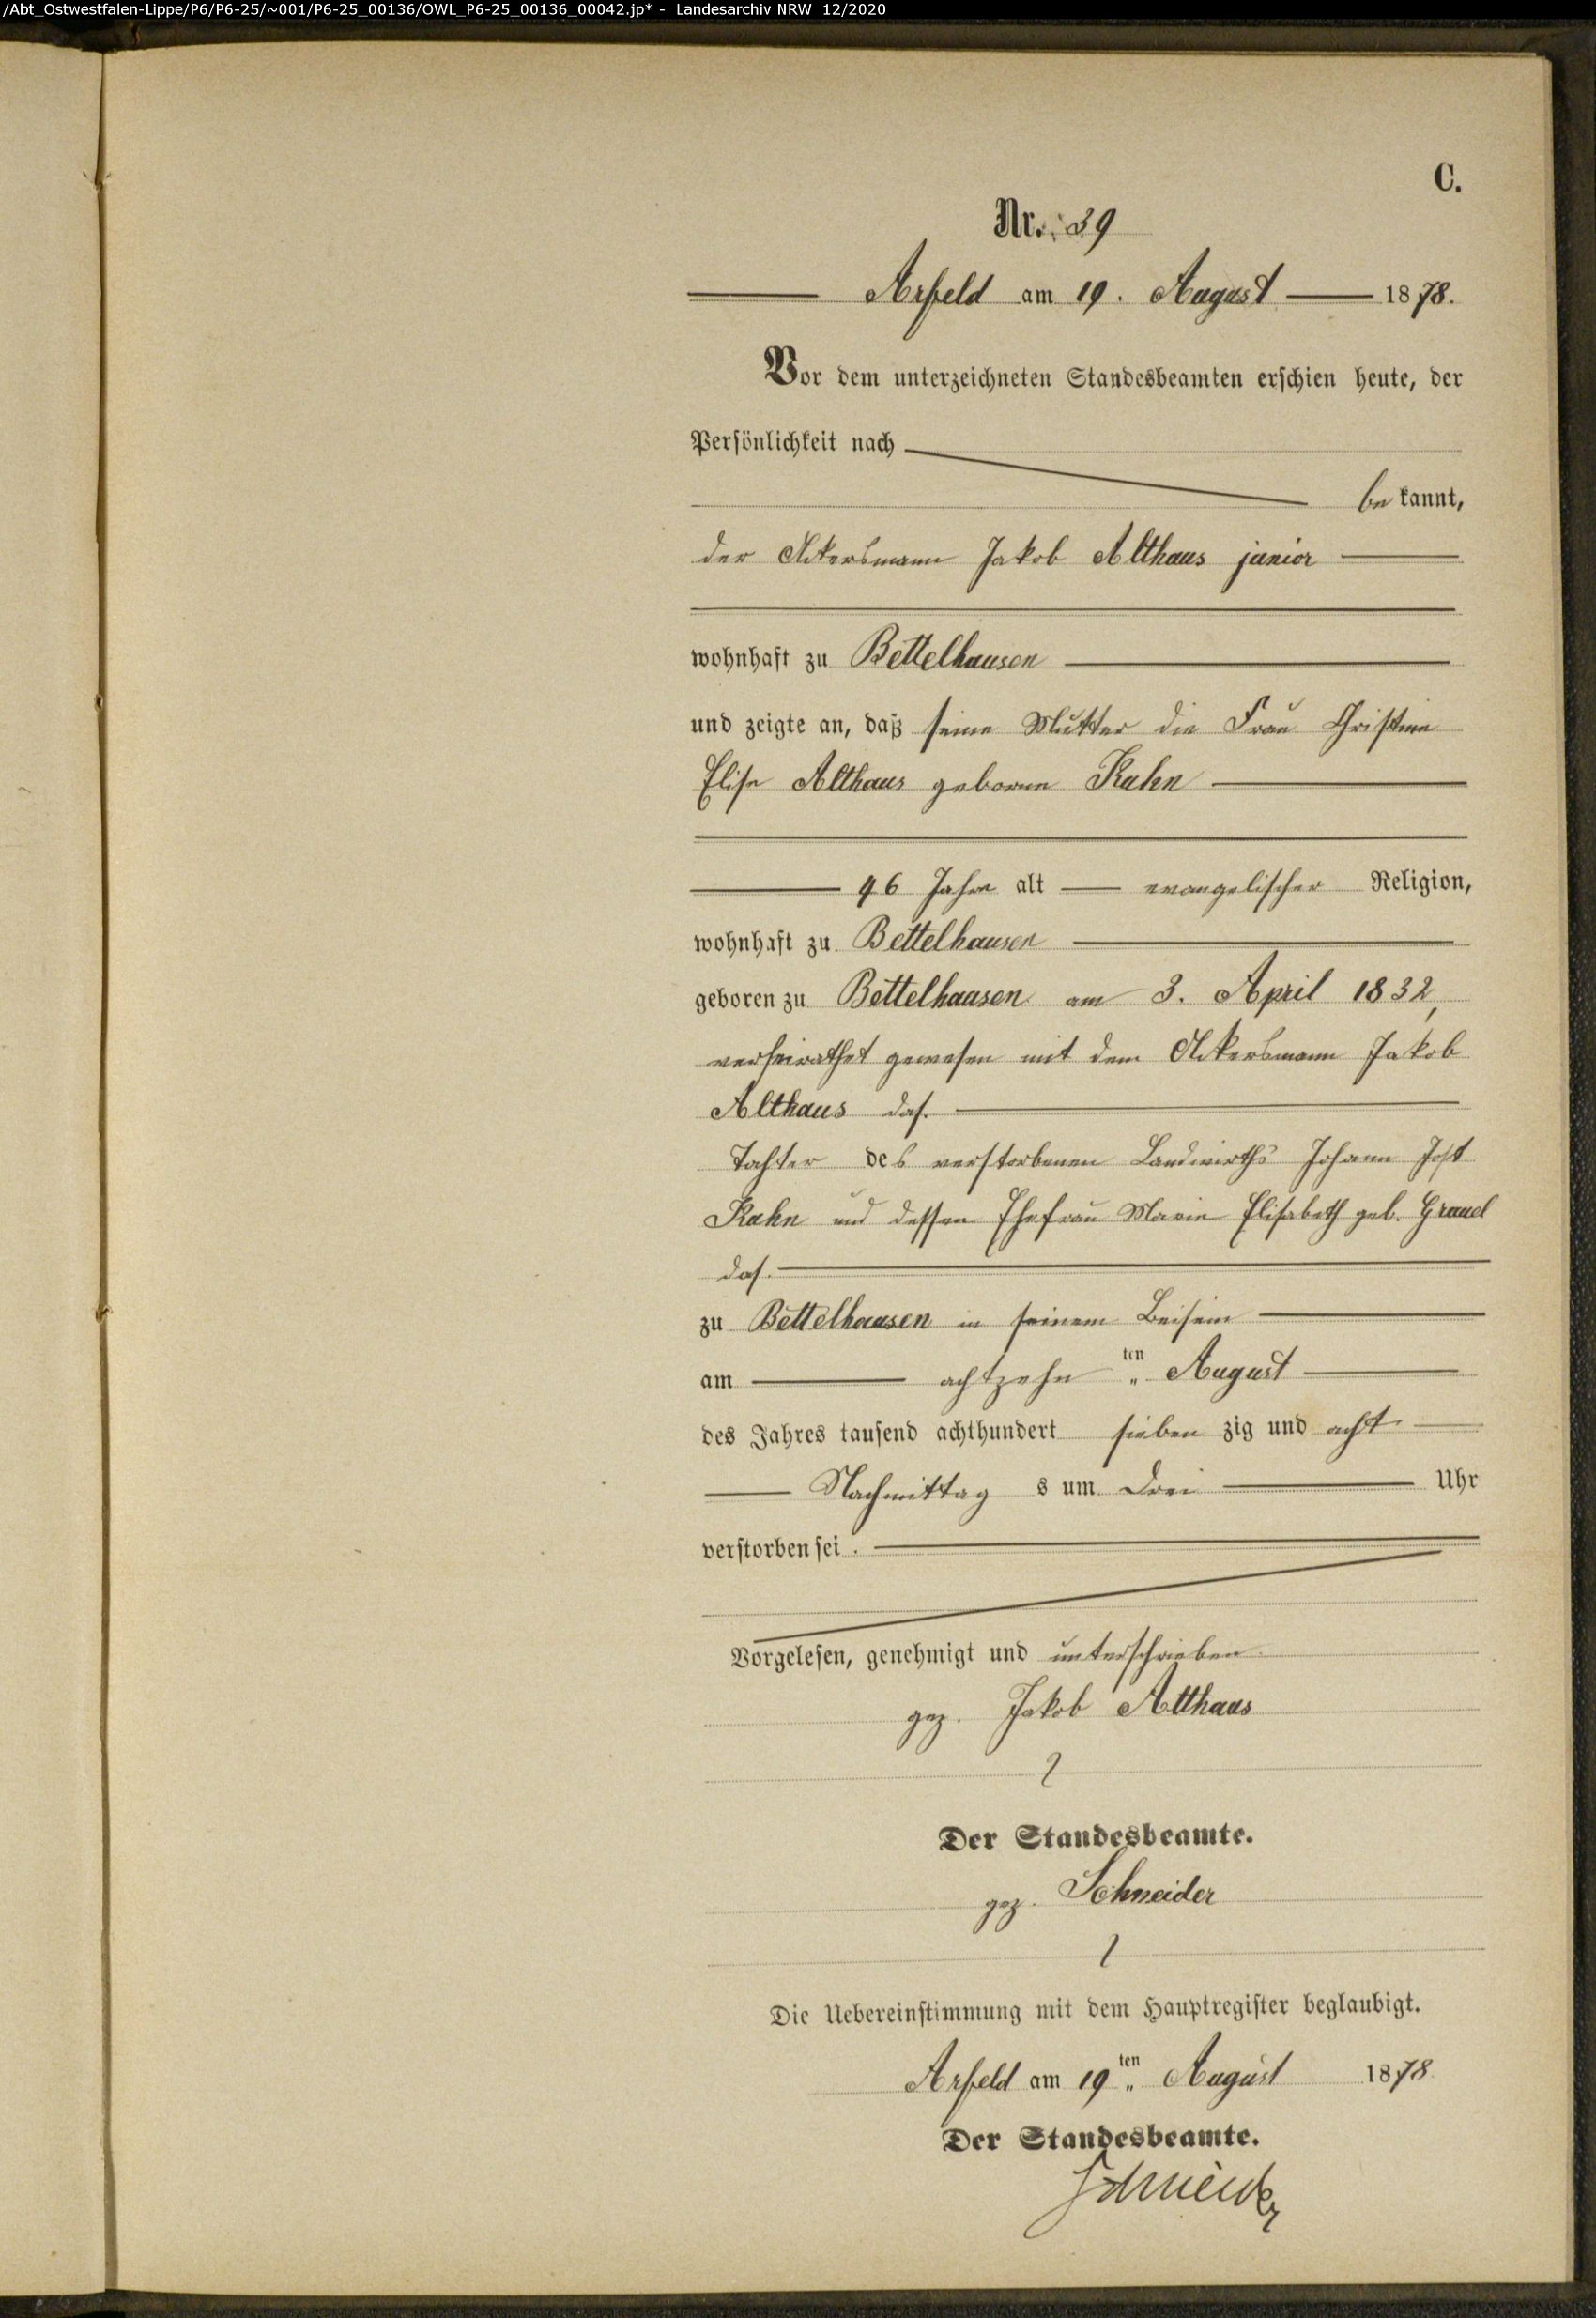 /Abt_Ostwestfalen-Lippe/P6/P6-25/~001/P6-25_00136/OWL_P6-25_00136_00042.jp* - Landesarchiv NRW 12/2020
C.
Nr. 39
Arfeld am 19. August 1878.
Vor dem unterzeichneten Standesbeamten erschien heute, der
Persönlichkeit nach
bekannt,
der Ackersmann Jakob Althaus junior
wohnhaft zu Bettelhausen
und zeigte an, daß seine Mutter die Frau Christine
Elise Althaus geborne Kuhn
46 Jahre alt evangelischer Religion,
wohnhaft zu Bettelhausen
geboren zu Bettelhausen am 3. April 1832,
verheirathet gewesen mit dem Ackersmann Jakob
Althaus das.
Tochter des verstorbenen Landwirths Johann Jost
Kuhn und dessen Ehefrau Marie Elisabeth geb. Grauel
das.
zu Bettelhausen in seinem Beisein
am achtzehn ten August
des Jahres tausend achthundert siebenzig und acht
Nachmittags um drei Uhr
verstorben sei.
Vorgelesen, genehmigt und unterschrieben
gez. Jakob Althaus
Der Standesbeamte.
gez. Schneider
Die Uebereinstimmung mit dem Hauptregister beglaubigt.
Arfeld am 19ten August 1878
Der Standesbeamte.
Schneider